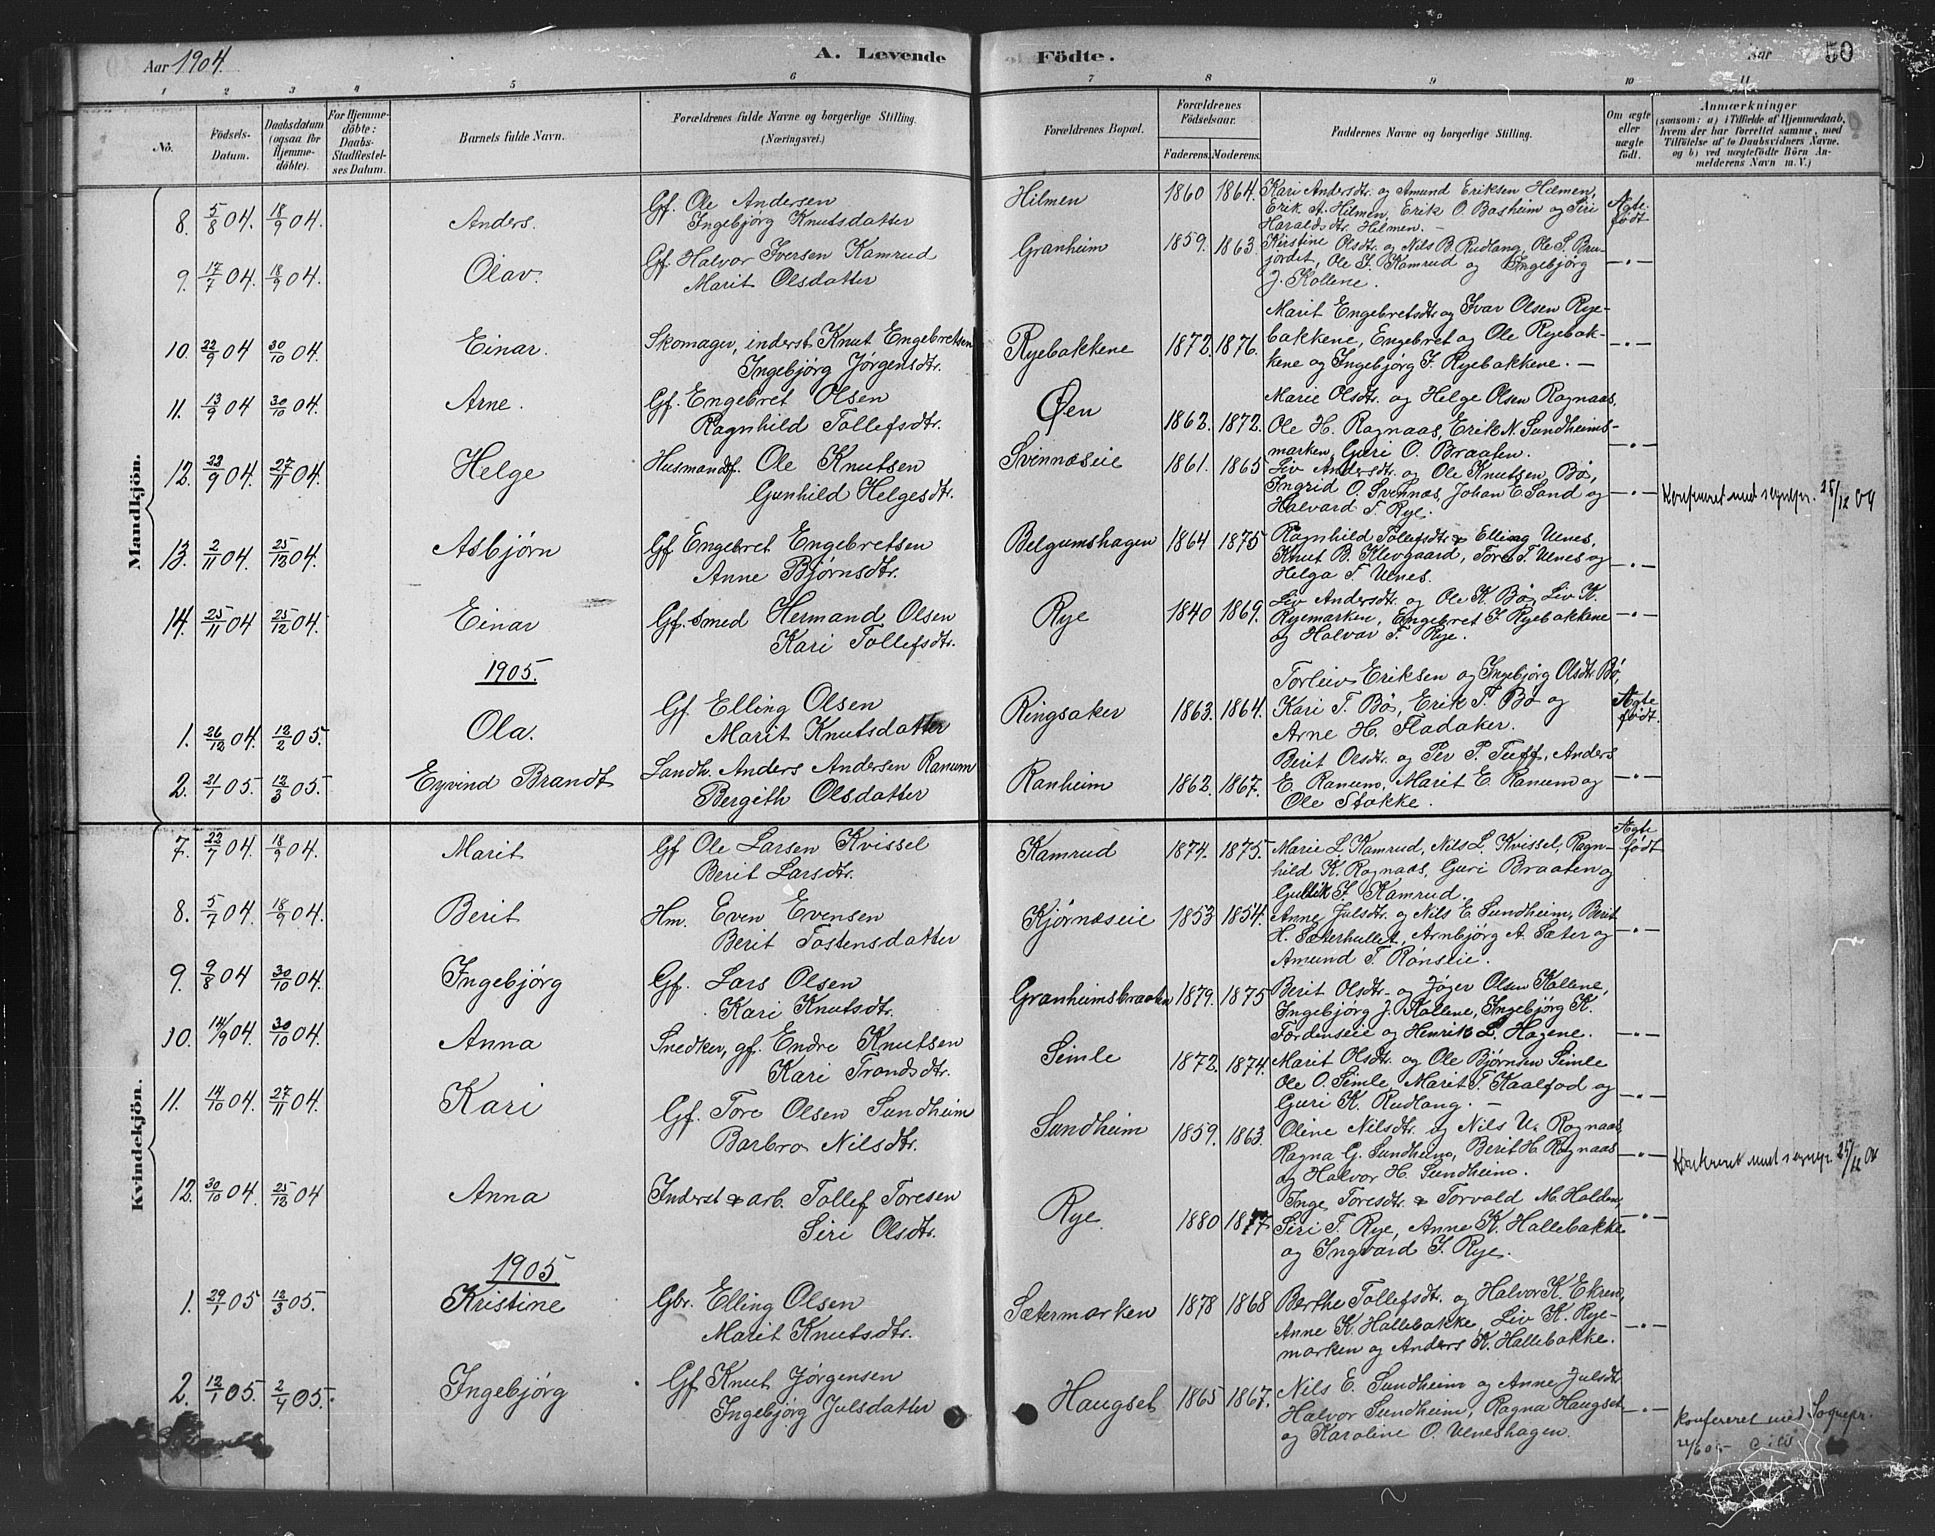 Aar 1904. A. Levende Födte. Aar 50
1 2 3 4 5 6 7 8 9 10 11
No.
Födsels-Datum.
Daabsdatum (ogsaa for Hjemme-döbte).
For Hjemme-döbte: Daabs-Stadfæstel-ses Datum.
Barnets fulde Navn.
Forældrenes fulde Navne og borgerlige Stilling. (Næringsvei.)
Forældrenes Bopæl.
Forældrenes Födselsaar.
Faderens. Moderens.
Faddernes Navne og borgerlige Stilling.
Om ægte eller uægte födt.
Anmærkninger
(saasom: a) i Tilfælde af Hjemmedaab, hvem der har forrettet samme, med Tilföielse af to Daabsvidners Navne, og b) ved uægtefödte Börn An-melderens Navn m. V.)
Mandkjön.
8. 5/8 04. 18/9 04. Anders. Gf. Ole Andersen
Ingebjörg Knutsdatter
Hilmen 1860 1864. Kari Andersdtr. og Amund Eriksen Hilmen,
Erik A. Hilmen, Erik O. Basheim og Siri
Haraldsdtr. Hilmen. —
Ægte-födt.
9. 17/7 04. 18/9 04. Olav. Gf. Halvor Iversen Kamrud
Marit Olsdatter
Granheim 1859. 1863. Kirstine Olsdtr. og Nils B. Rudlang, Ole S. Bru-
jordet, Ole I. Kamrud og Ingebjörg
J. Kollene. —.—
10. 22/9 04 30/10 04. Einar. Skomager, inderst Knut Engebretsen
Ingebjörg Jörgensdtr.
Ryebakkene 1872. 1876. Marit Engebretsdtr. og Ivar Olsen Rye-
bakkene, Engebret og Ole Ryebak-
kene og Ingebjörg J. Ryebakkene. — —.—
11. 13/9 04 30/10 04. Arne. Gf. Engebret Olsen
Ragnhild Tollefsdtr.
Øen 1862. 1872. Marie Olsdtr. og Helge Olsen Rognaas,
Ole H. Rognaas, Erik N. Sundheims-
marken, Guri O. Braaten. —.—
12. 22/9 04. 27/11 04. Helge Husmandsf. Ole Knutsen
Gunhild Helgesdtr.
Svennæseie 1861. 1865 Liv Andersdtr. og Ole Knutsen Bø,
Ingrid O. Svennæs, Johan E. Sand og
Halvard T. Rye. —.— Konfereret med sognepr. 25/12 04
13. 2/11 04. 25/12 04. Asbjørn Gf Engebret Engebretsen
Anne Bjørnsdtr.
Belgumshagen 1864 1875 Ragnhild Tollefsdtr. & Elling Ulnes,
Knut B. Klevgaard, Tore T. Ulnes og
Helga T. Ulnes. —.—
14. 25/11 04 25/12 04. Einar Gf. smed Hermand Olsen
Kari Tollefsdtr.
Rye 1840 1869. Liv Andersdtr. og Ole K. Bø, Liv K.
Ryemarken, Engebret J. Ryebakkene
og Halvor T. Rye. —.—
1905.
1. 26/12 04. 12/2 05. Ola. Gf. Elling Olsen
Marit Knutsdatter
Ringsaker 1863. 1864. Torleiv Eriksen og Ingebjörg Olsdtr. Bø,
Kari T. Bø, Erik T. Bø og
Arne H. Fladaker. Ægte födt.
2. 21/1 05. 12/3 05. Eyvind Brandt Landh. Anders Andersen Ranum
Bergith Olsdatter
Ranheim 1862. 1867. Berit Olsdtr. og Per P. Tuff, Anders
E. Ranum, Marit E. Ranum og
Ole Stokke. —.—
Kvindekjön.
7. 22/7 04. 18/9 04. Marit Gf Ole Larsen Kvissel
Berit Larsdtr.
Kamrud 1874. 1875. Marie L. Kamrud, Nils L. Kvissel, Ragn-
hild K. Rognaas, Guri Braaten og
Gullik I. Kamrud. Ægte födt
8. 5/7 04. 18/9 04. Berit Hm. Even Evensen
Berit Tostensdatter
Kjörnæseie 1853 1854. Anne Julsdtr. og Nils E. Sundheim, Berit
H. Sæterhullet, Arnbjörg A. Sæter og
Amund T. Rønseie. —.—
9. 9/8 04 30/10 04. Ingebjörg Gf. Lars Olsen
Kari Knutsdtr.
Granheimsbraaten 1879. 1875 Berit Olsdtr. og Jöger Olsen Kollene,
Ingebjörg J. Kollene, Ingebjörg K.
Fordenseie og Henrik L. Hagene. —.—
10. 14/9 04 30/10 04. Anna Snedker, gf. Endre Knutsen
Kari Trondsdtr.
Semle 1872. 1874. Marit Olsdtr. og Ole Bjørnsen Semle
Ole O. Semle, Marit T. Kaalfod og
Guri K. Rudlang. — —.—
11. 14/10 04. 27/11 04. Kari Gf. Tore Olsen Sundheim
Barbro Nilsdtr.
Sundheim 1859. 1863. Oline Nilsdtr. og Nils U. Rognaas,
Ragna G. Sundheim, Berit H. Rognaas
og Halvor H. Sundheim. —.— Konfereret med sognepr. 25/12 04
12. 30/10 04. 25/12 04 Anna Inderst & arb. Tollef Toresen
Siri Olsdtr.
Rye. 1880 1877. Inge Toresdtr. & Torvald M. Holden,
Siri T. Rye, Anne K. Hallebakke
og Ingvard J. Rye. —.—
1905
1. 29/1 05 12/3 05. Kristine Gbr. Elling Olsen
Marit Knutsdtr.
Sætermarken 1878 1868 Berthe Tollefsdtr. og Halvor K. Ekren,
Anne K. Hallebakke, Liv K. Rye-
marken og Anders K. Hallebakke. —.—
2. 12/1 05. 2/4 05. Ingebjörg Gf Knut Jörgensen
Ingebjörg Julsdatter
Haugset 1865 1867. Nils E. Sundheim og Anne Julsdtr
Halvor Sundheim, Ragna Haugset
og Karoline O. Ulneshagen. —.— Konfereret med Sognepr.